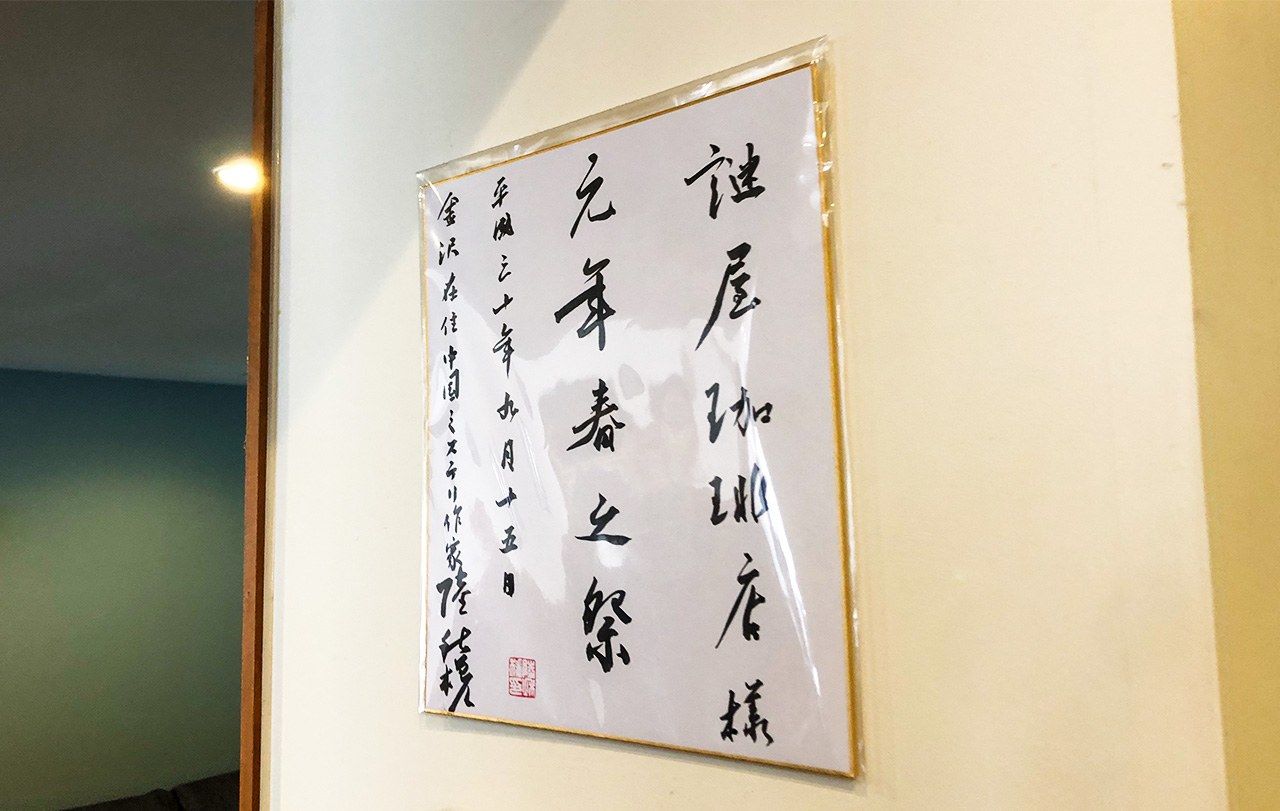 謎屋珈琲店様
元年春之祭
平成三十年九月十五日
金沢在住中国ミステリ作家陸秋槎